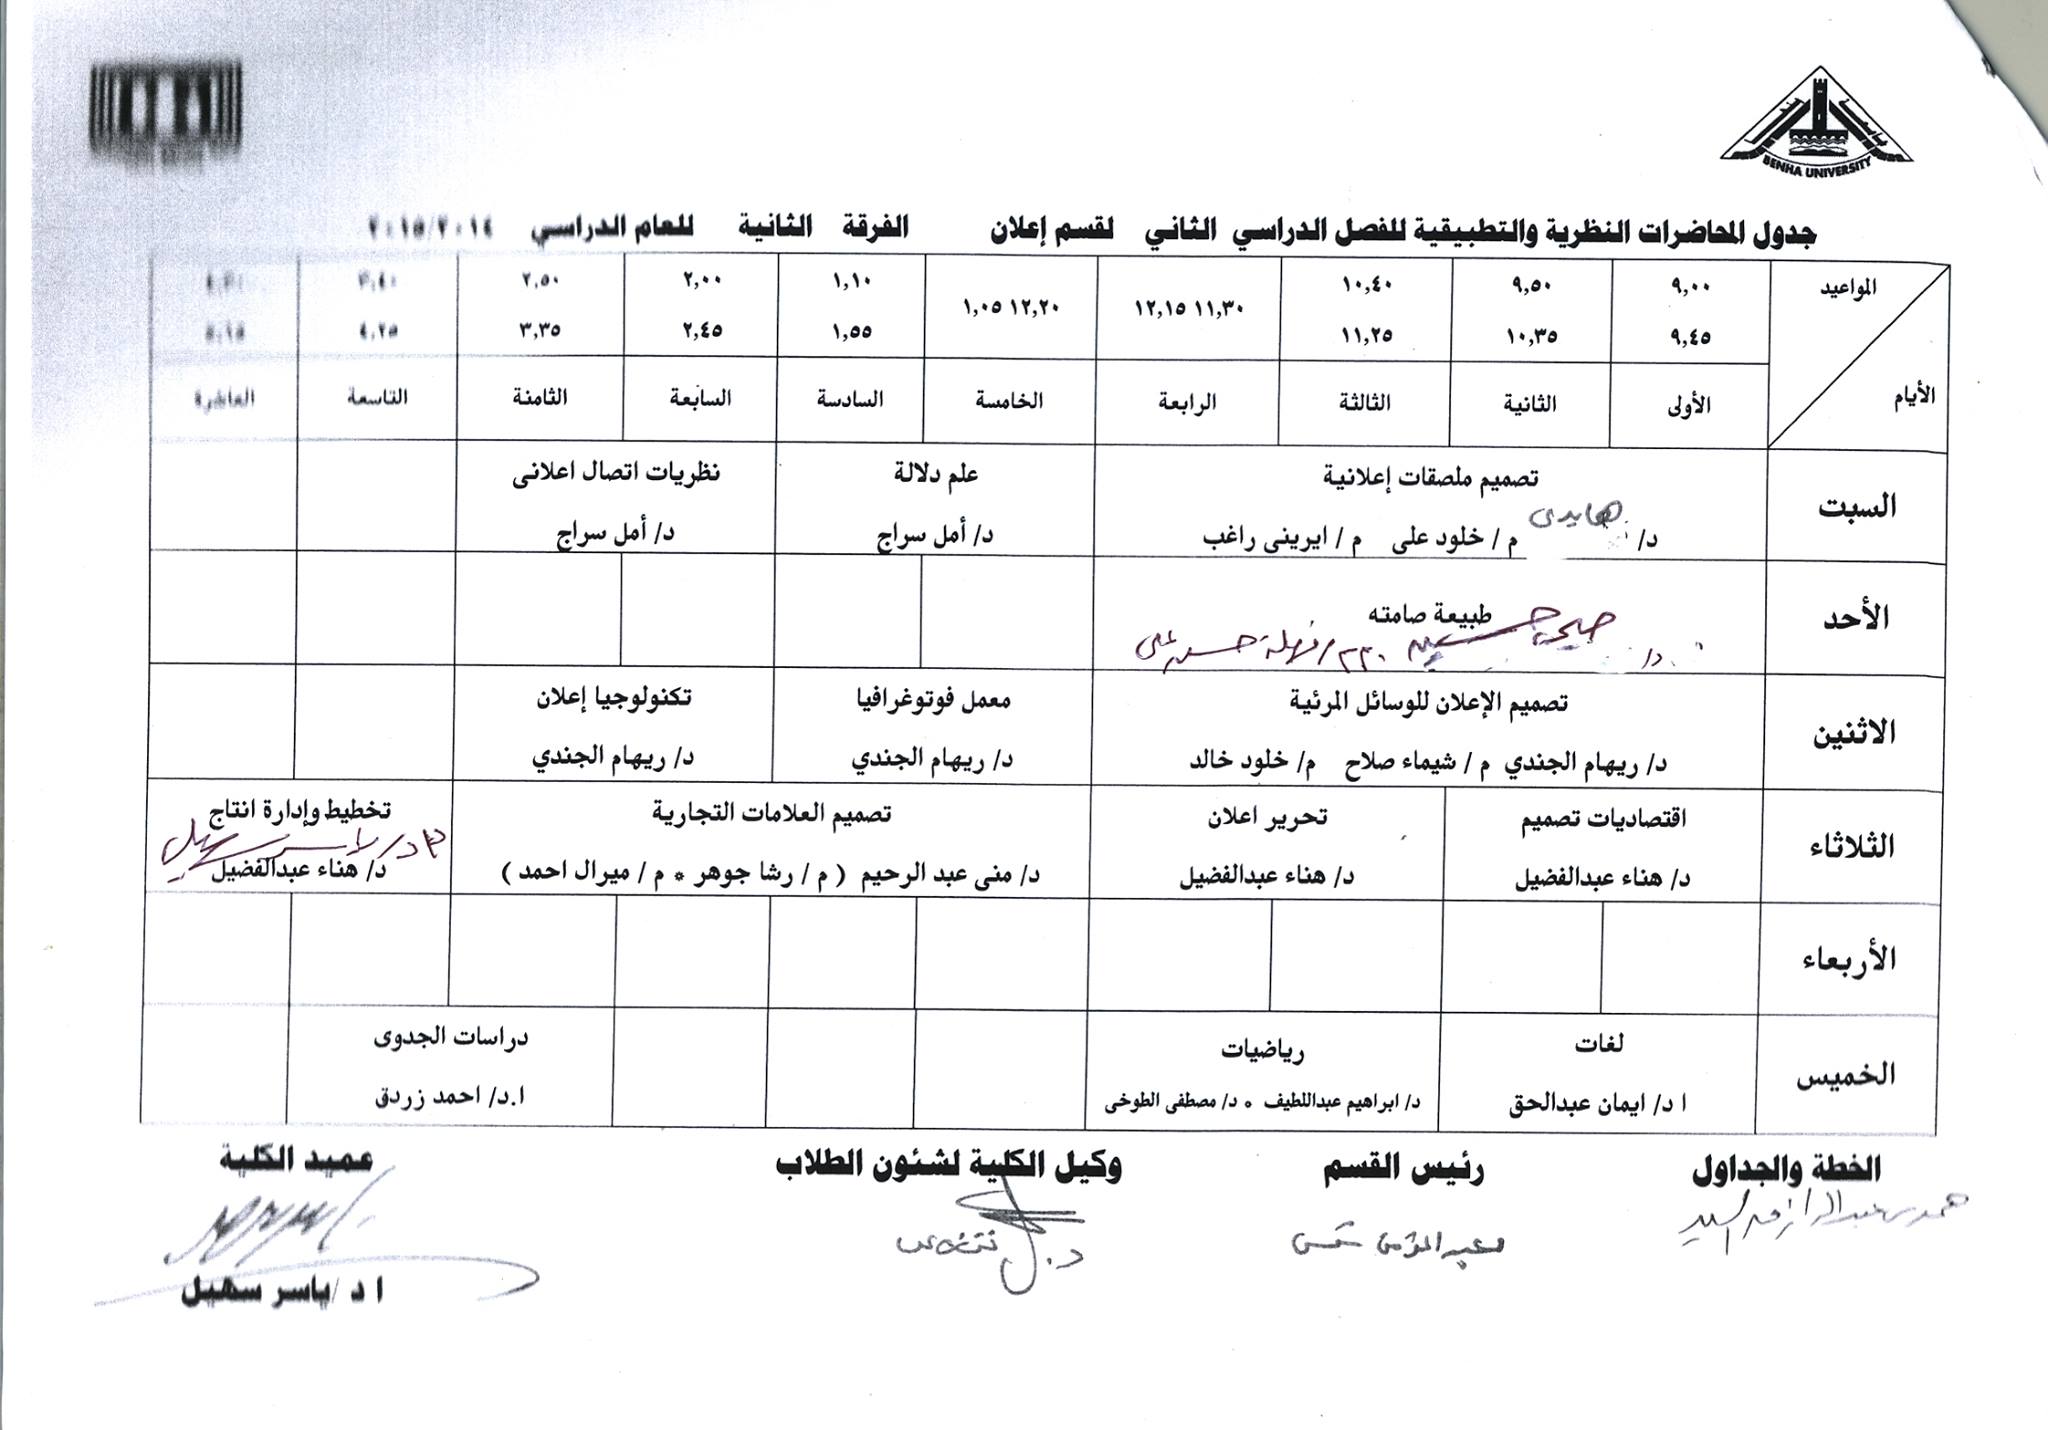 BENHA UNIVERSITY
جدول المحاضرات النظرية والتطبيقية للفصل الدراسي الثاني لقسم إعلان الفرقة الثانية للعام الدراسي ٢٠١٥/٢٠١٤
المواعيد ٩,٠٠ ٩,٥٠ ١٠,٤٠ ١١,٣٠ ١٢,١٥ ١٢,٢٠ ١,٠٥ ١,١٠ ٢,٠٠ ٢,٥٠ ٣,٤٠
٩,٤٥ ١٠,٣٥ ١١,٢٥ ١,٥٥ ٢,٤٥ ٣,٣٥ ٤,٢٥ ٥,١٥
الأيام الأولى الثانية الثالثة الرابعة الخامسة السادسة السابعة الثامنة التاسعة العاشرة
السبت تصميم ملصقات إعلانية علم دلالة نظريات اتصال اعلانى
د/ هايدى م / خلود على م / ايرينى راغب د/ أمل سراج د/ أمل سراج
الأحد طبيعة صامته
د/
الاثنين تصميم الإعلان للوسائل المرئية معمل فوتوغرافيا تكنولوجيا إعلان
د/ ريهام الجندي م / شيماء صلاح م/ خلود خالد د/ ريهام الجندي د/ ريهام الجندي
الثلاثاء اقتصاديات تصميم تحرير اعلان تصميم العلامات التجارية تخطيط وإدارة انتاج
د/ هناء عبدالفضيل د/ هناء عبدالفضيل د/ منى عبد الرحيم ( م / رشا جوهر * م / ميرال احمد ) د/ هناء عبدالفضيل
الأربعاء
الخميس لغات رياضيات دراسات الجدوى
ا د/ ايمان عبدالحق د/ ابراهيم عبداللطيف * د/ مصطفى الطوخى ا.د/ احمد زردق
الخطة والجداول رئيس القسم وكيل الكلية لشئون الطلاب عميد الكلية
ا د /ياسر سهيل